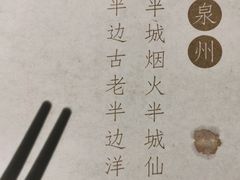 泉州
半城烟火半城仙
半边古老半边洋